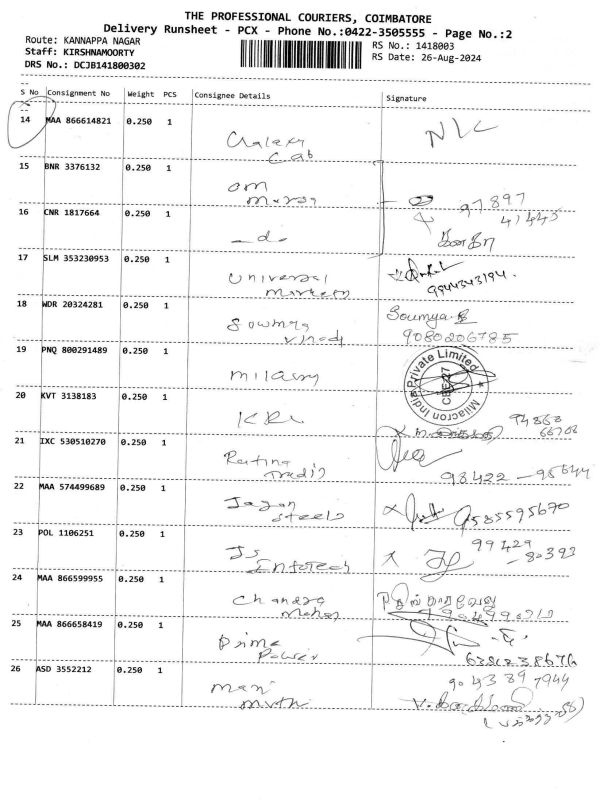 THE PROFESSIONAL COURIERS, COIMBATORE
Delivery Runsheet - PCX - Phone No.:0422-3505555 - Page No.:2
Route: KANNAPPA NAGAR
Staff: KIRSHNAMOORTY
DRS No.: DCJB141800302
RS No.: 1418003
RS Date: 26-Aug-2024
S No Consignment No Weight PCS Consignee Details Signature
14 MAA 866614821 0.250 1
Galaxy
Cab
15 BNR 3376132 0.250 1
om
97897
16 CNR 1817664 0.250 1 41445
- do -
17 SLM 353230953 0.250 1
Universal
9944343194.
18 WDR 20324281 0.250 1 Soumya
Sowmya
Vinod 9080206785
19 PNQ 800291489 0.250 1
Milacron India Private Limited
CBE-27
20 KVT 3138183 0.250 1
21 IXC 530510270 0.250 1
98422 - 95644
22 MAA 574499689 0.250 1
Jagan
steels 9585595670
23 POL 1106251 0.250 1 99429
JS - 80393
Infotech
24 MAA 866599955 0.250 1
Chandra
Mohan
25 MAA 866658419 0.250 1
Prime
Power
26 ASD 3552212 0.250 1 90433 89 7944
Mani